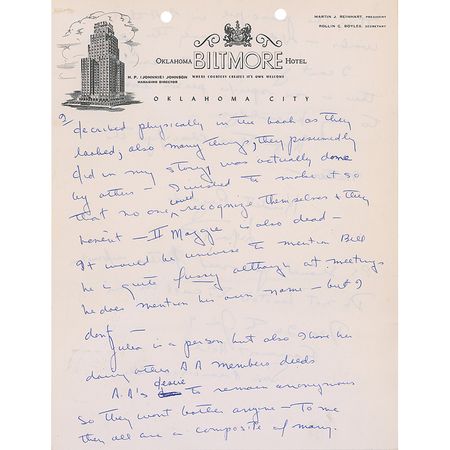 MARTIN J. REINHART, PRESIDENT
ROLLIN C. BOYLES, SECRETARY
OKLAHOMA BILTMORE HOTEL
H. P. (JOHNNIE) JOHNSON
MANAGING DIRECTOR
WHERE COURTESY CREATES IT'S OWN WELCOME
OKLAHOMA CITY
2
decribed physically in the book as they
looked, also many things, they presumedly
did in my story was actually done
by others — I wanted to make it so
that no one could recognize themselves & they
havent — II Maggie is also dead —
It would be unwise to mention Bill
he is quite fussy although at meetings
he does mention his own name — but I
dont —
Julia is a person but also I have her
doing other A A members deeds
A.A's desire to remain anonymous
so they wont bother anyone — To me
they all are a composite of many.